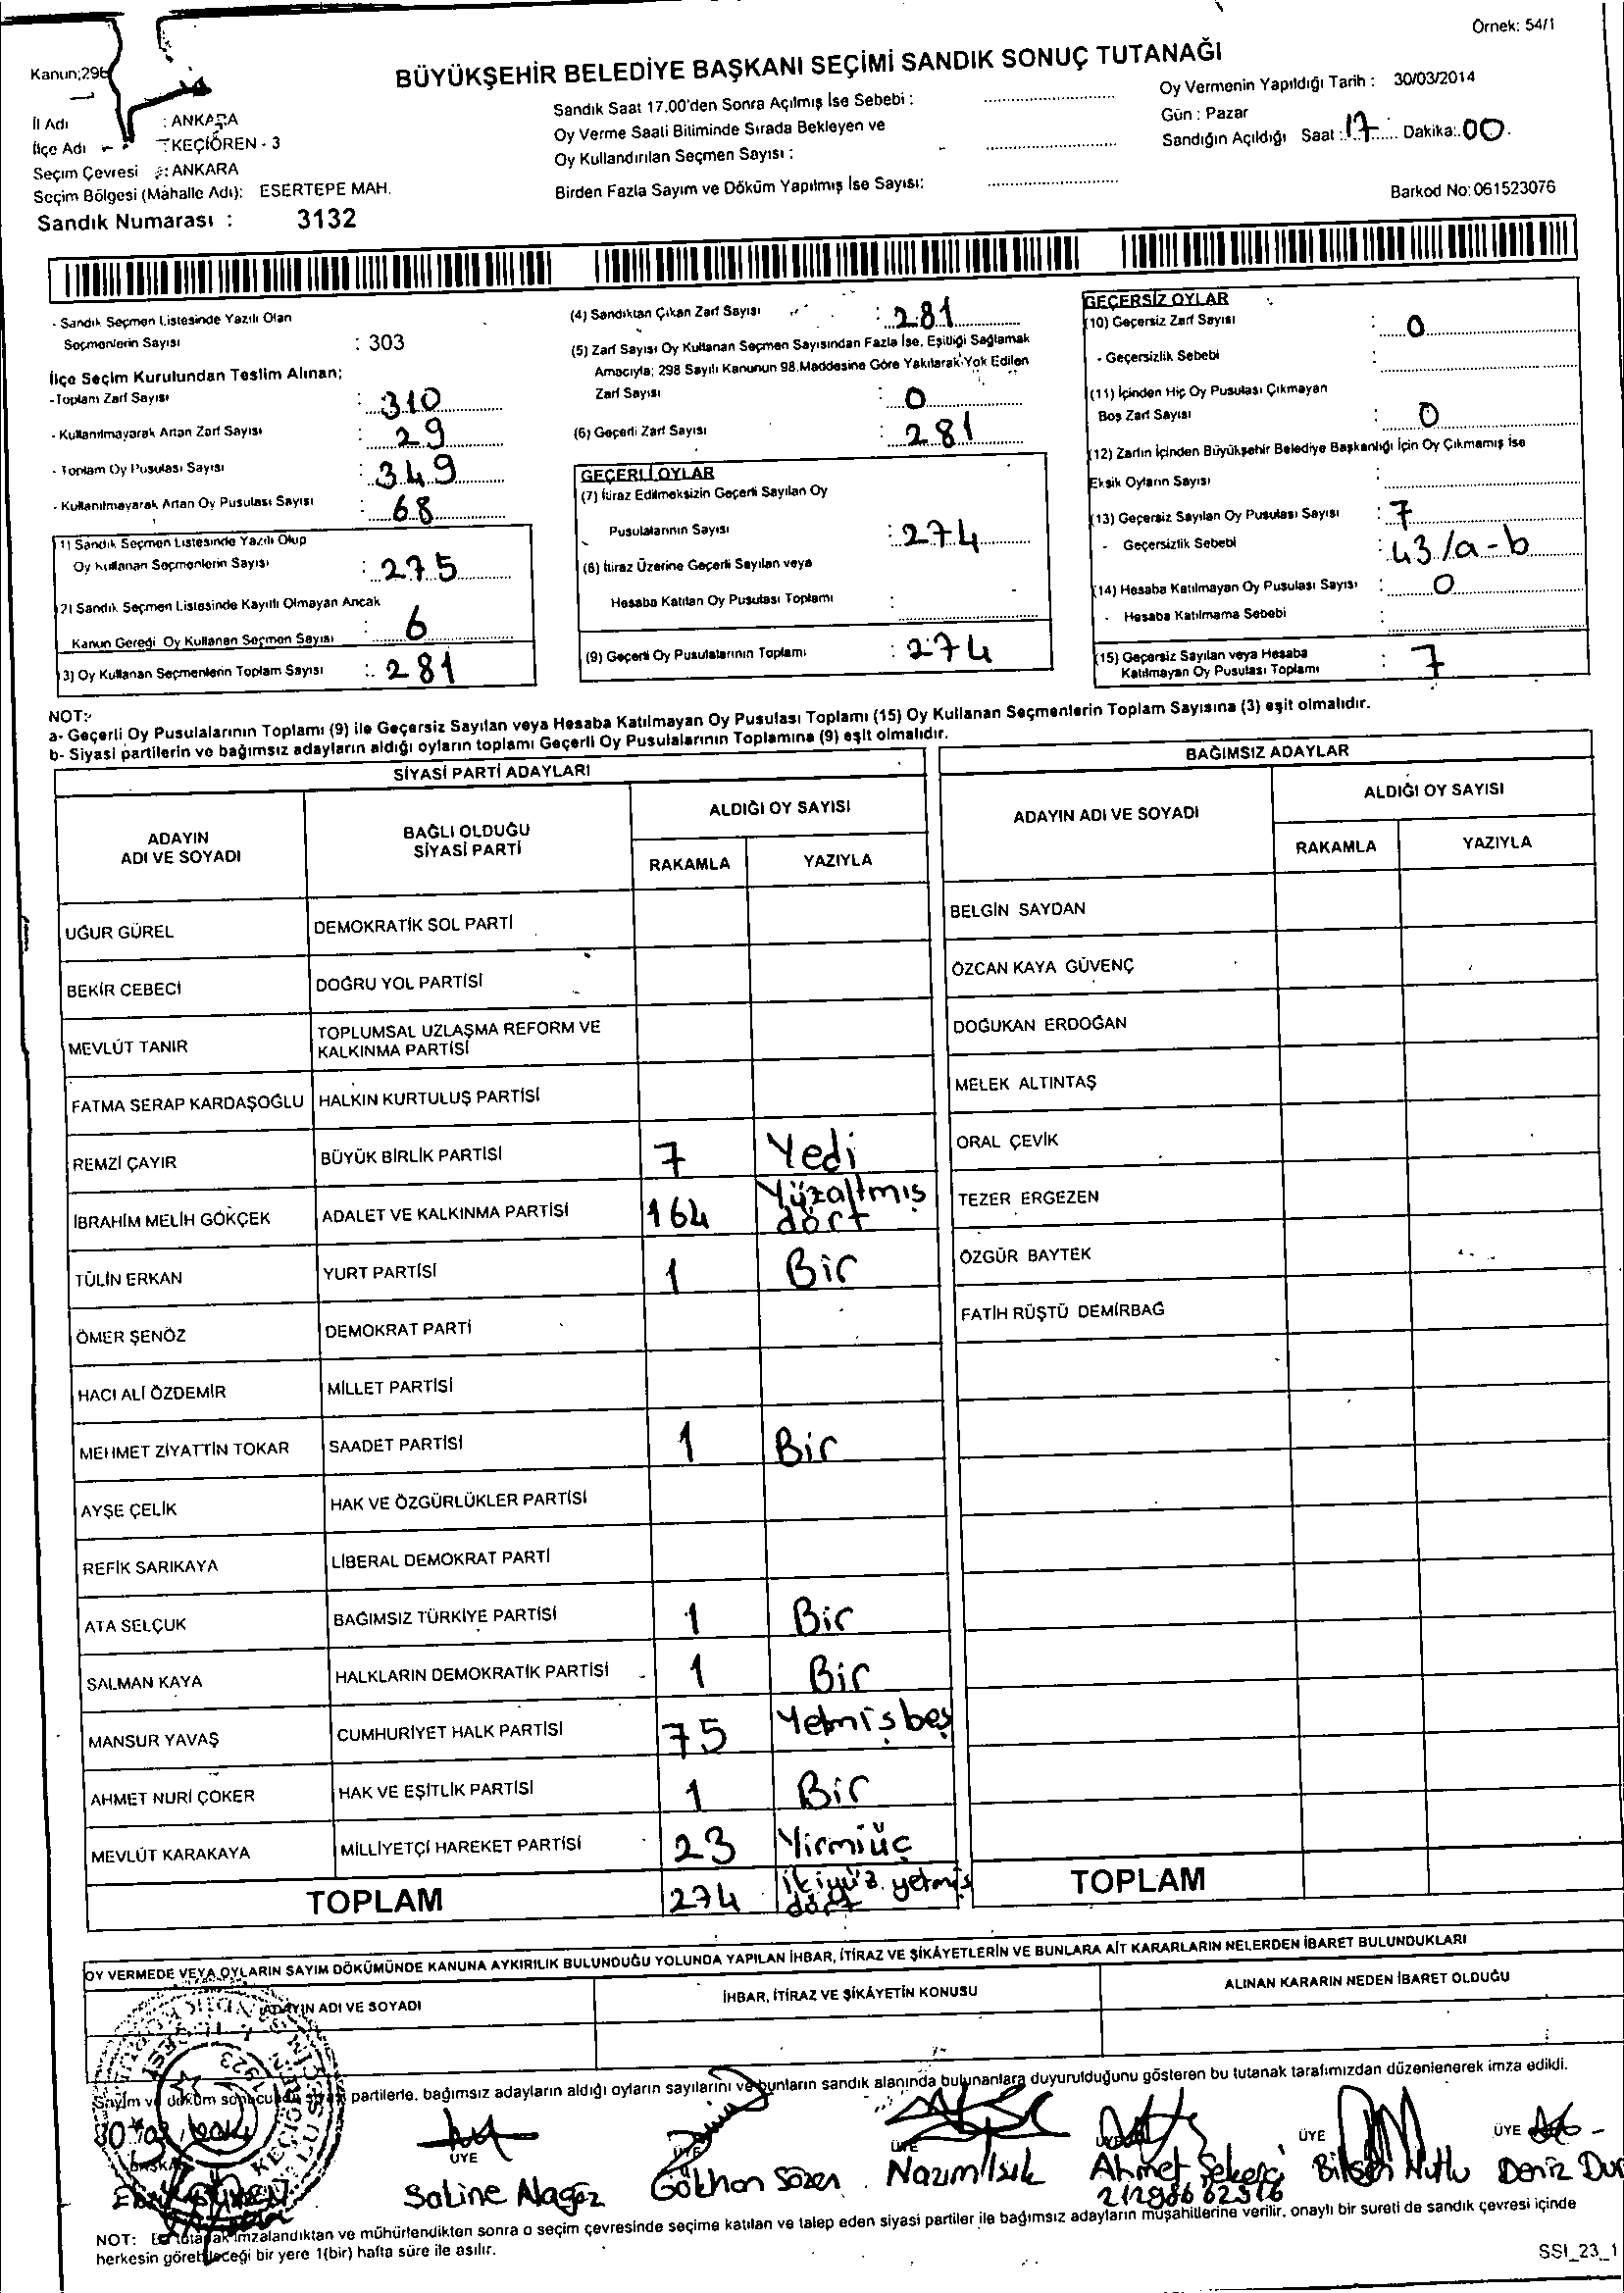 Örnek: 54/1
BÜYÜKŞEHİR BELEDİYE BAŞKANI SEÇİMİ SANDIK SONUÇ TUTANAĞI
Kanun;298
İl Adı : ANKARA
İlçe Adı : KEÇİÖREN - 3
Seçim Çevresi : ANKARA
Seçim Bölgesi (Mahalle Adı): ESERTEPE MAH.
Sandık Numarası : 3132
Sandık Saat 17.00'den Sonra Açılmış İse Sebebi :
Oy Verme Saati Bitiminde Sırada Bekleyen ve
Oy Kullandırılan Seçmen Sayısı :
Birden Fazla Sayım ve Döküm Yapılmış İse Sayısı:
Oy Vermenin Yapıldığı Tarih : 30/03/2014
Gün : Pazar
Sandığın Açıldığı Saat : 17 Dakika: 00
Barkod No: 061523076
- Sandık Seçmen Listesinde Yazılı Olan
Seçmenlerin Sayısı : 303
İlçe Seçim Kurulundan Teslim Alınan;
- Toplam Zarf Sayısı : 310
- Kullanılmayarak Artan Zarf Sayısı : 29
- Toplam Oy Pusulası Sayısı : 349
- Kullanılmayarak Artan Oy Pusulası Sayısı : 68
(1) Sandık Seçmen Listesinde Yazılı Olup
Oy kullanan Seçmenlerin Sayısı : 275
(2) Sandık Seçmen Listesinde Kayıtlı Olmayan Ancak
Kanun Gereği Oy Kullanan Seçmen Sayısı : 6
(3) Oy Kullanan Seçmenlerin Toplam Sayısı : 281
(4) Sandıktan Çıkan Zarf Sayısı : 281
(5) Zarf Sayısı Oy Kullanan Seçmen Sayısından Fazla İse, Eşitliği Sağlamak
Amacıyla; 298 Sayılı Kanunun 98.Maddesine Göre Yakılarak Yok Edilen
Zarf Sayısı : 0
(6) Geçerli Zarf Sayısı : 281
GEÇERLİ OYLAR
(7) İtiraz Edilmeksizin Geçerli Sayılan Oy
Pusulalarının Sayısı : 274
(8) İtiraz Üzerine Geçerli Sayılan veya
Hesaba Katılan Oy Pusulası Toplamı :
(9) Geçerli Oy Pusulalarının Toplamı : 274
GEÇERSİZ OYLAR
(10) Geçersiz Zarf Sayısı : 0
- Geçersizlik Sebebi :
(11) İçinden Hiç Oy Pusulası Çıkmayan
Boş Zarf Sayısı : 0
(12) Zarfın İçinden Büyükşehir Belediye Başkanlığı İçin Oy Çıkmamış ise
Eksik Oyların Sayısı :
(13) Geçersiz Sayılan Oy Pusulası Sayısı : 7
- Geçersizlik Sebebi : 43/a-b
(14) Hesaba Katılmayan Oy Pusulası Sayısı : 0
- Hesaba Katılmama Sebebi :
(15) Geçersiz Sayılan veya Hesaba
Katılmayan Oy Pusulası Toplamı : 7
NOT:
a- Geçerli Oy Pusulalarının Toplamı (9) ile Geçersiz Sayılan veya Hesaba Katılmayan Oy Pusulası Toplamı (15) Oy Kullanan Seçmenlerin Toplam Sayısına (3) eşit olmalıdır.
b- Siyasi partilerin ve bağımsız adayların aldığı oyların toplamı Geçerli Oy Pusulalarının Toplamına (9) eşit olmalıdır.
SİYASİ PARTİ ADAYLARI
ADAYIN ADI VE SOYADI
BAĞLI OLDUĞU SİYASİ PARTİ
ALDIĞI OY SAYISI
RAKAMLA YAZIYLA
UĞUR GÜREL DEMOKRATİK SOL PARTİ
BEKİR CEBECİ DOĞRU YOL PARTİSİ
MEVLÜT TANIR TOPLUMSAL UZLAŞMA REFORM VE
KALKINMA PARTİSİ
FATMA SERAP KARDAŞOĞLU HALKIN KURTULUŞ PARTİSİ
REMZİ ÇAYIR BÜYÜK BİRLİK PARTİSİ 7 Yedi
İBRAHİM MELİH GÖKÇEK ADALET VE KALKINMA PARTİSİ 164 Yüzaltmış
dört
TÜLİN ERKAN YURT PARTİSİ 1 Bir
ÖMER ŞENÖZ DEMOKRAT PARTİ
HACI ALİ ÖZDEMİR MİLLET PARTİSİ
MEHMET ZİYATTİN TOKAR SAADET PARTİSİ 1 Bir
AYŞE ÇELİK HAK VE ÖZGÜRLÜKLER PARTİSİ
REFİK SARIKAYA LİBERAL DEMOKRAT PARTİ
ATA SELÇUK BAĞIMSIZ TÜRKİYE PARTİSİ 1 Bir
SALMAN KAYA HALKLARIN DEMOKRATİK PARTİSİ 1 Bir
MANSUR YAVAŞ CUMHURİYET HALK PARTİSİ 75 Yetmişbeş
AHMET NURİ ÇOKER HAK VE EŞİTLİK PARTİSİ 1 Bir
MEVLÜT KARAKAYA MİLLİYETÇİ HAREKET PARTİSİ 23 Yirmiüç
TOPLAM 274 ikiyüz yetmiş
dört
BAĞIMSIZ ADAYLAR
ADAYIN ADI VE SOYADI
ALDIĞI OY SAYISI
RAKAMLA YAZIYLA
BELGİN SAYDAN
ÖZCAN KAYA GÜVENÇ
DOĞUKAN ERDOĞAN
MELEK ALTINTAŞ
ORAL ÇEVİK
TEZER ERGEZEN
ÖZGÜR BAYTEK
FATİH RÜŞTÜ DEMİRBAĞ
TOPLAM
OY VERMEDE VEYA OYLARIN SAYIM DÖKÜMÜNDE KANUNA AYKIRILIK BULUNDUĞU YOLUNDA YAPILAN İHBAR, İTİRAZ VE ŞİKÂYETLERİN VE BUNLARA AİT KARARLARIN NELERDEN İBARET BULUNDUKLARI
ADAYIN ADI VE SOYADI
İHBAR, İTİRAZ VE ŞİKÂYETİN KONUSU
ALINAN KARARIN NEDEN İBARET OLDUĞU
Sayım ve döküm sonucunda siyasi partilerle, bağımsız adayların aldığı oyların sayılarını ve bunların sandık alanında bulunanlara duyurulduğunu gösteren bu tutanak tarafımızdan düzenlenerek imza edildi.
BAŞKAN ÜYE ÜYE ÜYE ÜYE ÜYE ÜYE
Gökhan Sözen Nazım Işık Ahmet Şekerci Deniz
21298662516
NOT: Bu tutanak imzalandıktan ve mühürlendikten sonra o seçim çevresinde seçime katılan ve talep eden siyasi partiler ile bağımsız adayların müşahitlerine verilir, onaylı bir sureti de sandık çevresi içinde
herkesin görebileceği bir yere 1(bir) hafta süre ile asılır.
SSI_23_1